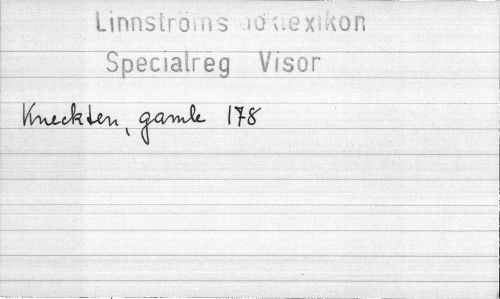 Linnströms boklexikon
Specialreg Visor
Kneckten, gamle 178